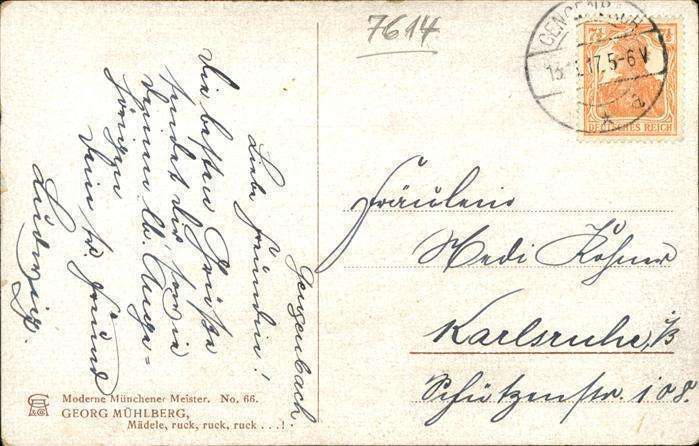 7614
GENGENBACH
17.5-6V
a
DEUTSCHES REICH
Gengenbach.
Liebe Freundin!
Die besten Grüße
sendet Dir sowie
Deinen lb. Ange-
hörigen
Dein tr. Freund
Ludwig.
Fräulein
Hedi Kohner
Karlsruhe i/B
Schützenstr. 108.
Moderne Münchener Meister. No. 66.
GEORG MÜHLBERG,
Mädele, ruck, ruck, ruck . . .!